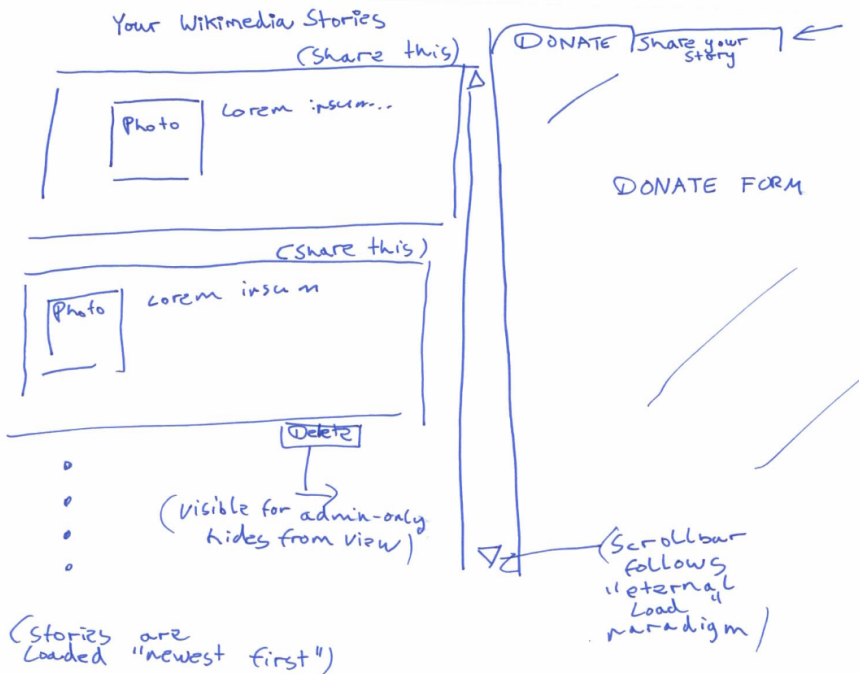 Your Wikimedia Stories
(Share this)
Photo
Lorem insum...
(Share this)
Photo
Lorem insum
Delete
(visible for admin-only
hides from view)
(stories are
Loaded "newest first")
DONATE
Share your
story
DONATE FORM
(Scrollbar
follows
"eternal
Load"
paradigm)